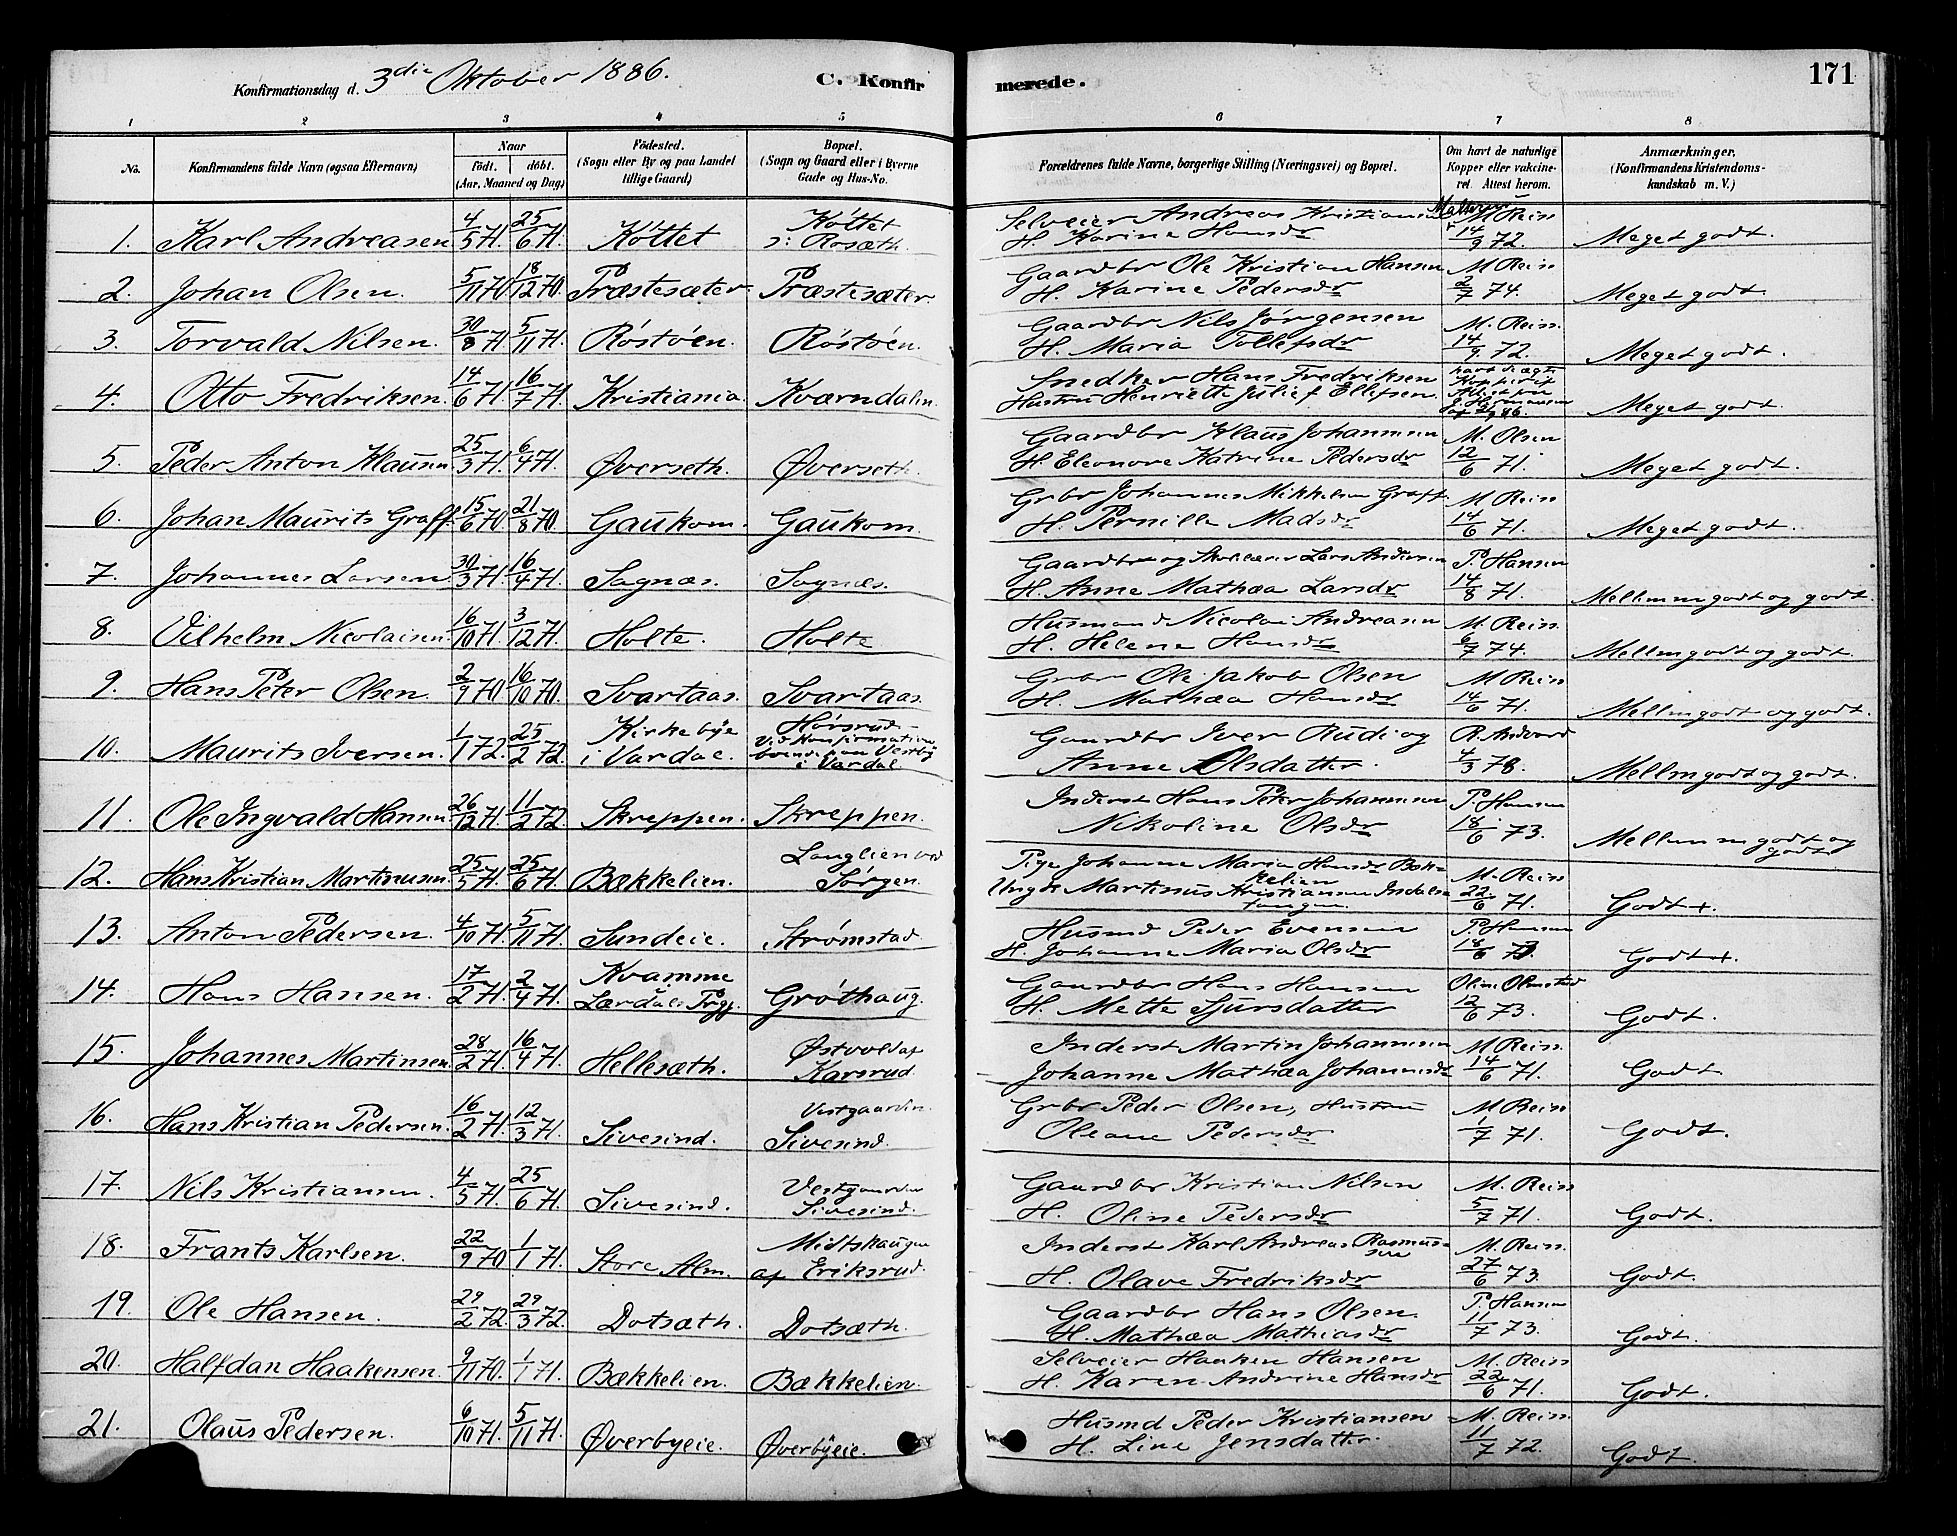 Konfirmationsdag d. 3die Oktober 1886.
C. Konfir
merede.
171
1 2 3 4 5 6 7 8
No.
Konfirmandens fulde Navn (ogsaa Efternavn)
Naar
født. døbt.
(Aar, Maaned og Dag)
Fødested.
(Sogn eller By og paa Landet
tillige Gaard)
Bopæl.
(Sogn og Gaard eller i Byerne
Gade og Hus-No.
Forældrenes fulde Navne, borgerlige Stilling (Næringsvei) og Bopæl.
Om havt de naturlige
Kopper eller vakcine-
ret. Attest herom.
Anmærkninger.
(Konfirmandens Kristendoms-
kundskab m. V.)
1. Karl Andreasen 4/5 71. 25/6 71. Køttet Køttet
Rosæth.
Selveier Andreas Kristiansen
H. Karine Hansdr
M Reiss
14/9 72. Meget godt.
2. Johan Olsen. 5/11 70. 18/12 70. Præstesæter Præstesæter
Gaardbr Ole Kristian Hansen
H. Karine Pedersdr
M Reiss
2/7 74. Meget godt.
3. Torvald Nilsen. 30/8 71. 5/11 71. Røstøen. Røstøen.
Gaardbr Nils Jørgensen
H. Maria Tollefsdr
M. Reiss.
14/9. 72. Meget godt.
4. Otto Fredriksen. 14/6 71. 16/7 71. Kristiania. Kværndalen.
Snedker Hans Fredriksen
Hustru Henriette Julie f Ellefsen.
Meget godt.
5. Peder Anton Klausen 25/3 71. 6/4 71. Øverseth. Øverseth.
Gaardbr Klaus Johannesen
H. Eleonore Katrine Pedersdr
M. Olsen
12/6 71. Meget godt.
6. Johan Maurits Graff. 15/6 70. 21/8 70. Gaukom. Gaukom.
Grbr Johannes Mikkelsen Graff.
H. Pernille Madsdr
M Reiss
14/6 71. Meget godt.
7. Johannes Larsen 30/3 71. 16/4 71. Sagnæs. Sagnæs.
Gaardbr og Skolelærer Lars Andersen
H. Anne Mathea Larsdr
P. Hansen
14/8 71. Mellemgodt og godt.
8. Vilhelm Nicolaisen. 16/10 71. 3/12 71. Holte. Holte
Husmand Nicolai Andreasen
H. Helene Hansdr
M. Reiss
6/7 74. Mellemgodt og godt.
9. Hans Peter Olsen. 2/9 70. 16/10 70. Svartaas. Svartaas.
Grbr Ole Jakob Olsen
H. Mathæa Hansdr
M Reiss
14/6 71. Mellemgodt og godt.
10. Maurits Iversen. 1/1 72. 25/2 72. Kirkebye
i Vardal. Hørsrud.
Ved Konfirmationen
boende paa Vestby
i Vardal
Gaardbr Iver Rudi og
Anne Olsdatter.
R. Andvord
4/3 78. Mellemgodt og godt.
11. Ole Ingvald Hansen 26/12 71. 11/2 72. Skreppen. Skreppen.
Inderst Hans Peter Johannesen
Nikoline Olsdr
P. Hansen
18/6 73. Mellemgodt og
godt
12. Hans Kristian Martinusen 25/5 71. 25/6 71. Bækkelien. Langlien ved
Sørgen.
Pige Johanne Maria Hansdr Bæk-
kelien
Ungk. Martinus Kristiansen
M. Reiss
22/6 71. Godt +.
13. Anton Pedersen. 4/10 71. 5/11 71. Sundeie. Strømstad.
Husmd Peder Evensen
H. Johanne Maria Olsdr
P. Hansen
18/6 73. Godt +.
14. Hans Hansen. 17/2 71. 2/4 71. Kvamme
Lærdals Prgj. Grøthaug.
Gaardbr Hans Hansen
H. Mette Sjursdatter
Oline Olmstad
12/6 73. Godt.
15. Johannes Martinsen. 28/2 71. 16/4 71. Hellesæth. Østvold af
Karsrud.
Inderst Martin Johannesen
Johanne Mathæa Johannesdr
M Reiss
14/6 71. Godt
16. Hans Kristian Pedersen. 16/2 71. 12/3 71. Sivesind. Vestgaarden.
Sivesind.
Grbr Peder Olsen, Hustru
Oleane Pedersdr
M Reiss
1/7 71. Godt.
17. Nils Kristiansen. 4/5 71. 25/6 71. Sivesind. Vestgaarden
Sivesind.
Gaardbr Kristian Nilsen
H. Oline Pedersdr
M. Reiss
5/7 71. Godt.
18. Frants Karlsen. 22/9 70 1/1 71. Store Alm. Midtskaugen
af Eriksrud.
Inderst Karl Andreas Rasmus-
sen
H. Olave Fredriksdr
M. Reiss.
27/6 73. Godt.
19. Ole Hansen. 29/2 72. 29/3 72. Dotsæth. Dotsæth.
Gaardbr Hans Olsen.
H. Mathæa Mathiasdr
P. Hansen
11/7 73. Godt.
20. Halfdan Haakensen. 9/11 70. 1/1 71. Bækkelien. Bækkelien.
Selveier Haaken Hansen
H. Karen Andrine Hansdr
M. Reiss
22/6 71. Godt.
21. Olaus Pedersen. 6/10 71. 5/11 71. Øverbyeie. Øverbyeie.
Husmd Peder Kristiansen
H. Line Jensdatter.
M. Reiss
11/7 72. Godt